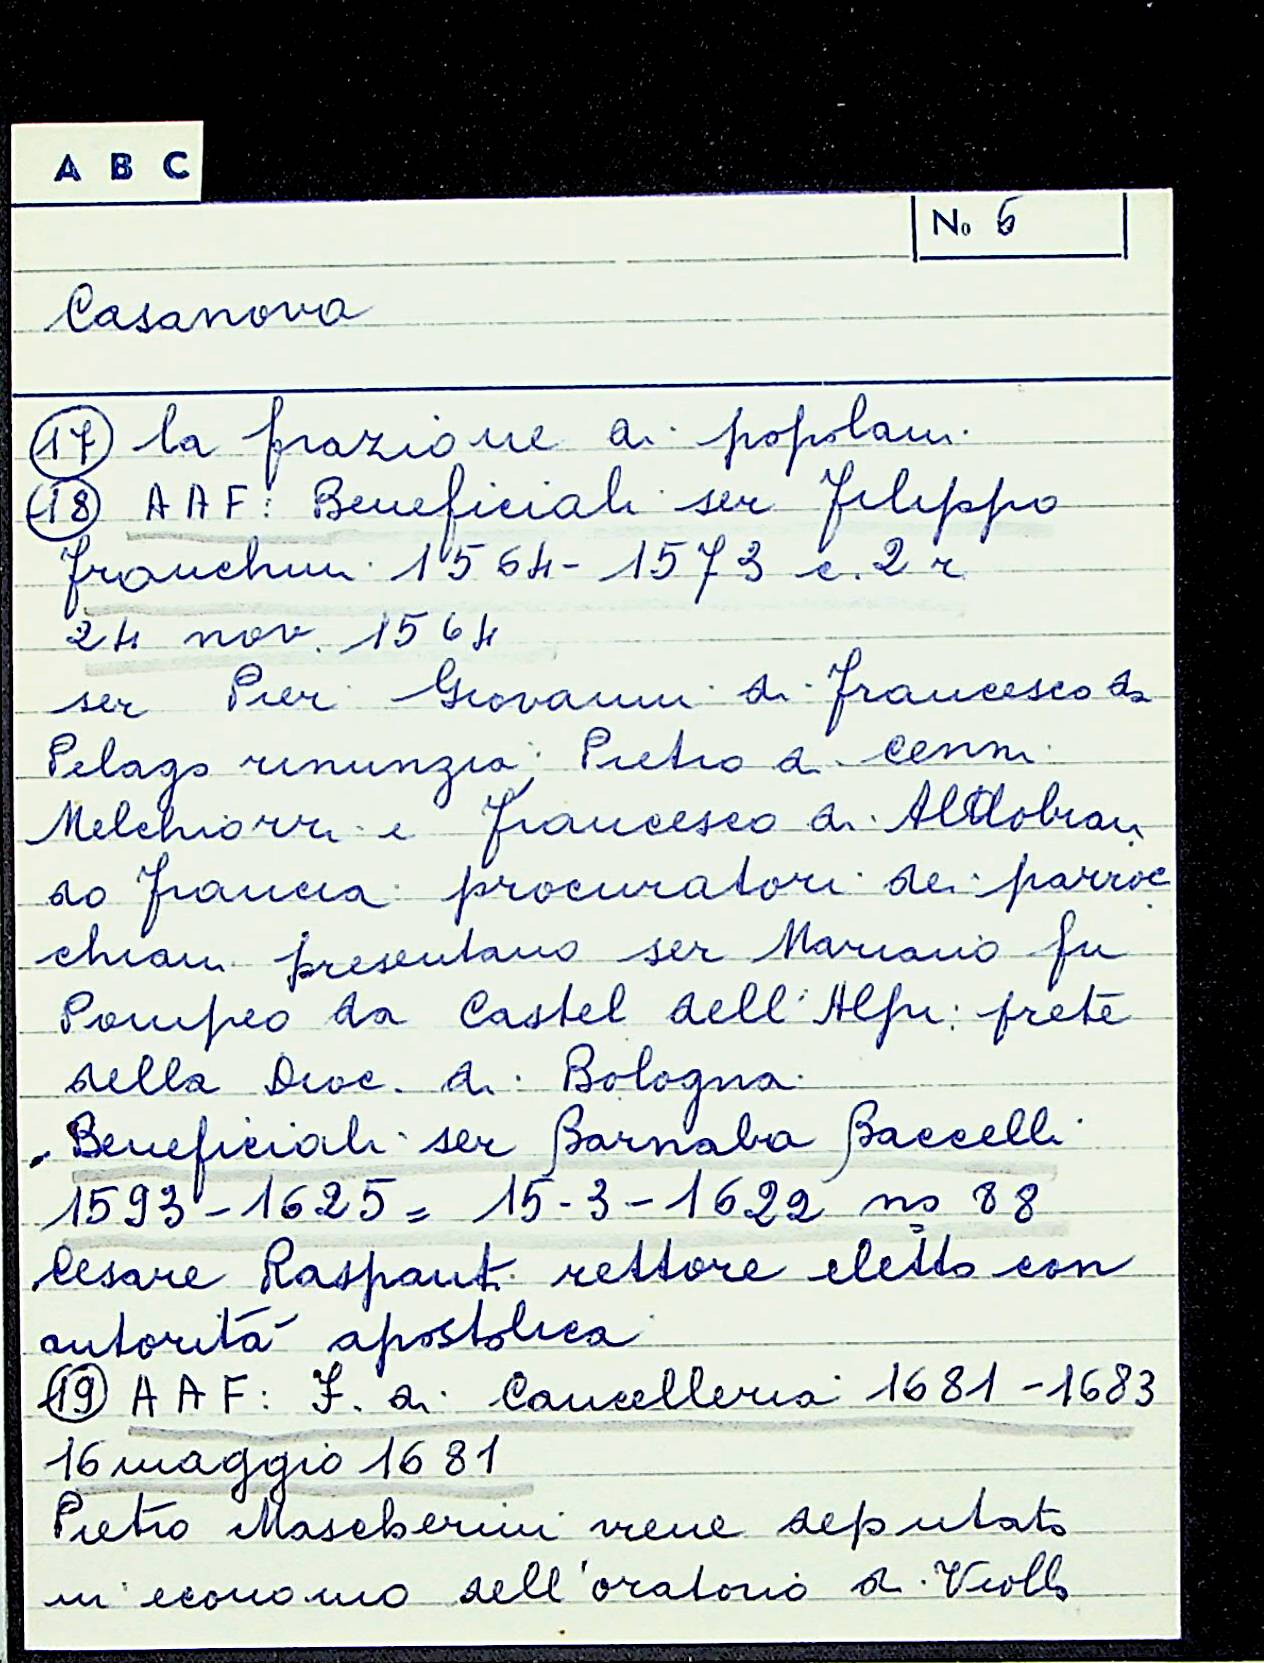 A B C
No 6
Casanova
17 la frazione di popolani
18 AAF: Beneficiali ser Filippo
Franchini 1564-1573 c. 2 r
24 nov. 1564
ser Pier Giovanni di Francesco da
Pelago rinunzia; Pietro di Cenni
Melchiorri e Francesco di Aldobran
do Francia procuratori dei parroc
chiani presentano ser Mariano fu
Pompeo da Castel dell'Alpi: prete
della Dioc. di Bologna.
Beneficiali ser Barnaba Baccelli
1593-1625 = 15-3-1622 no 88
Cesare Raspanti rettore eletto con
autorità apostolica
19 AAF: F. di Cancelleria 1681-1683
16 maggio 1681
Pietro Mascherini viene deputato
in economo dell'oratorio di